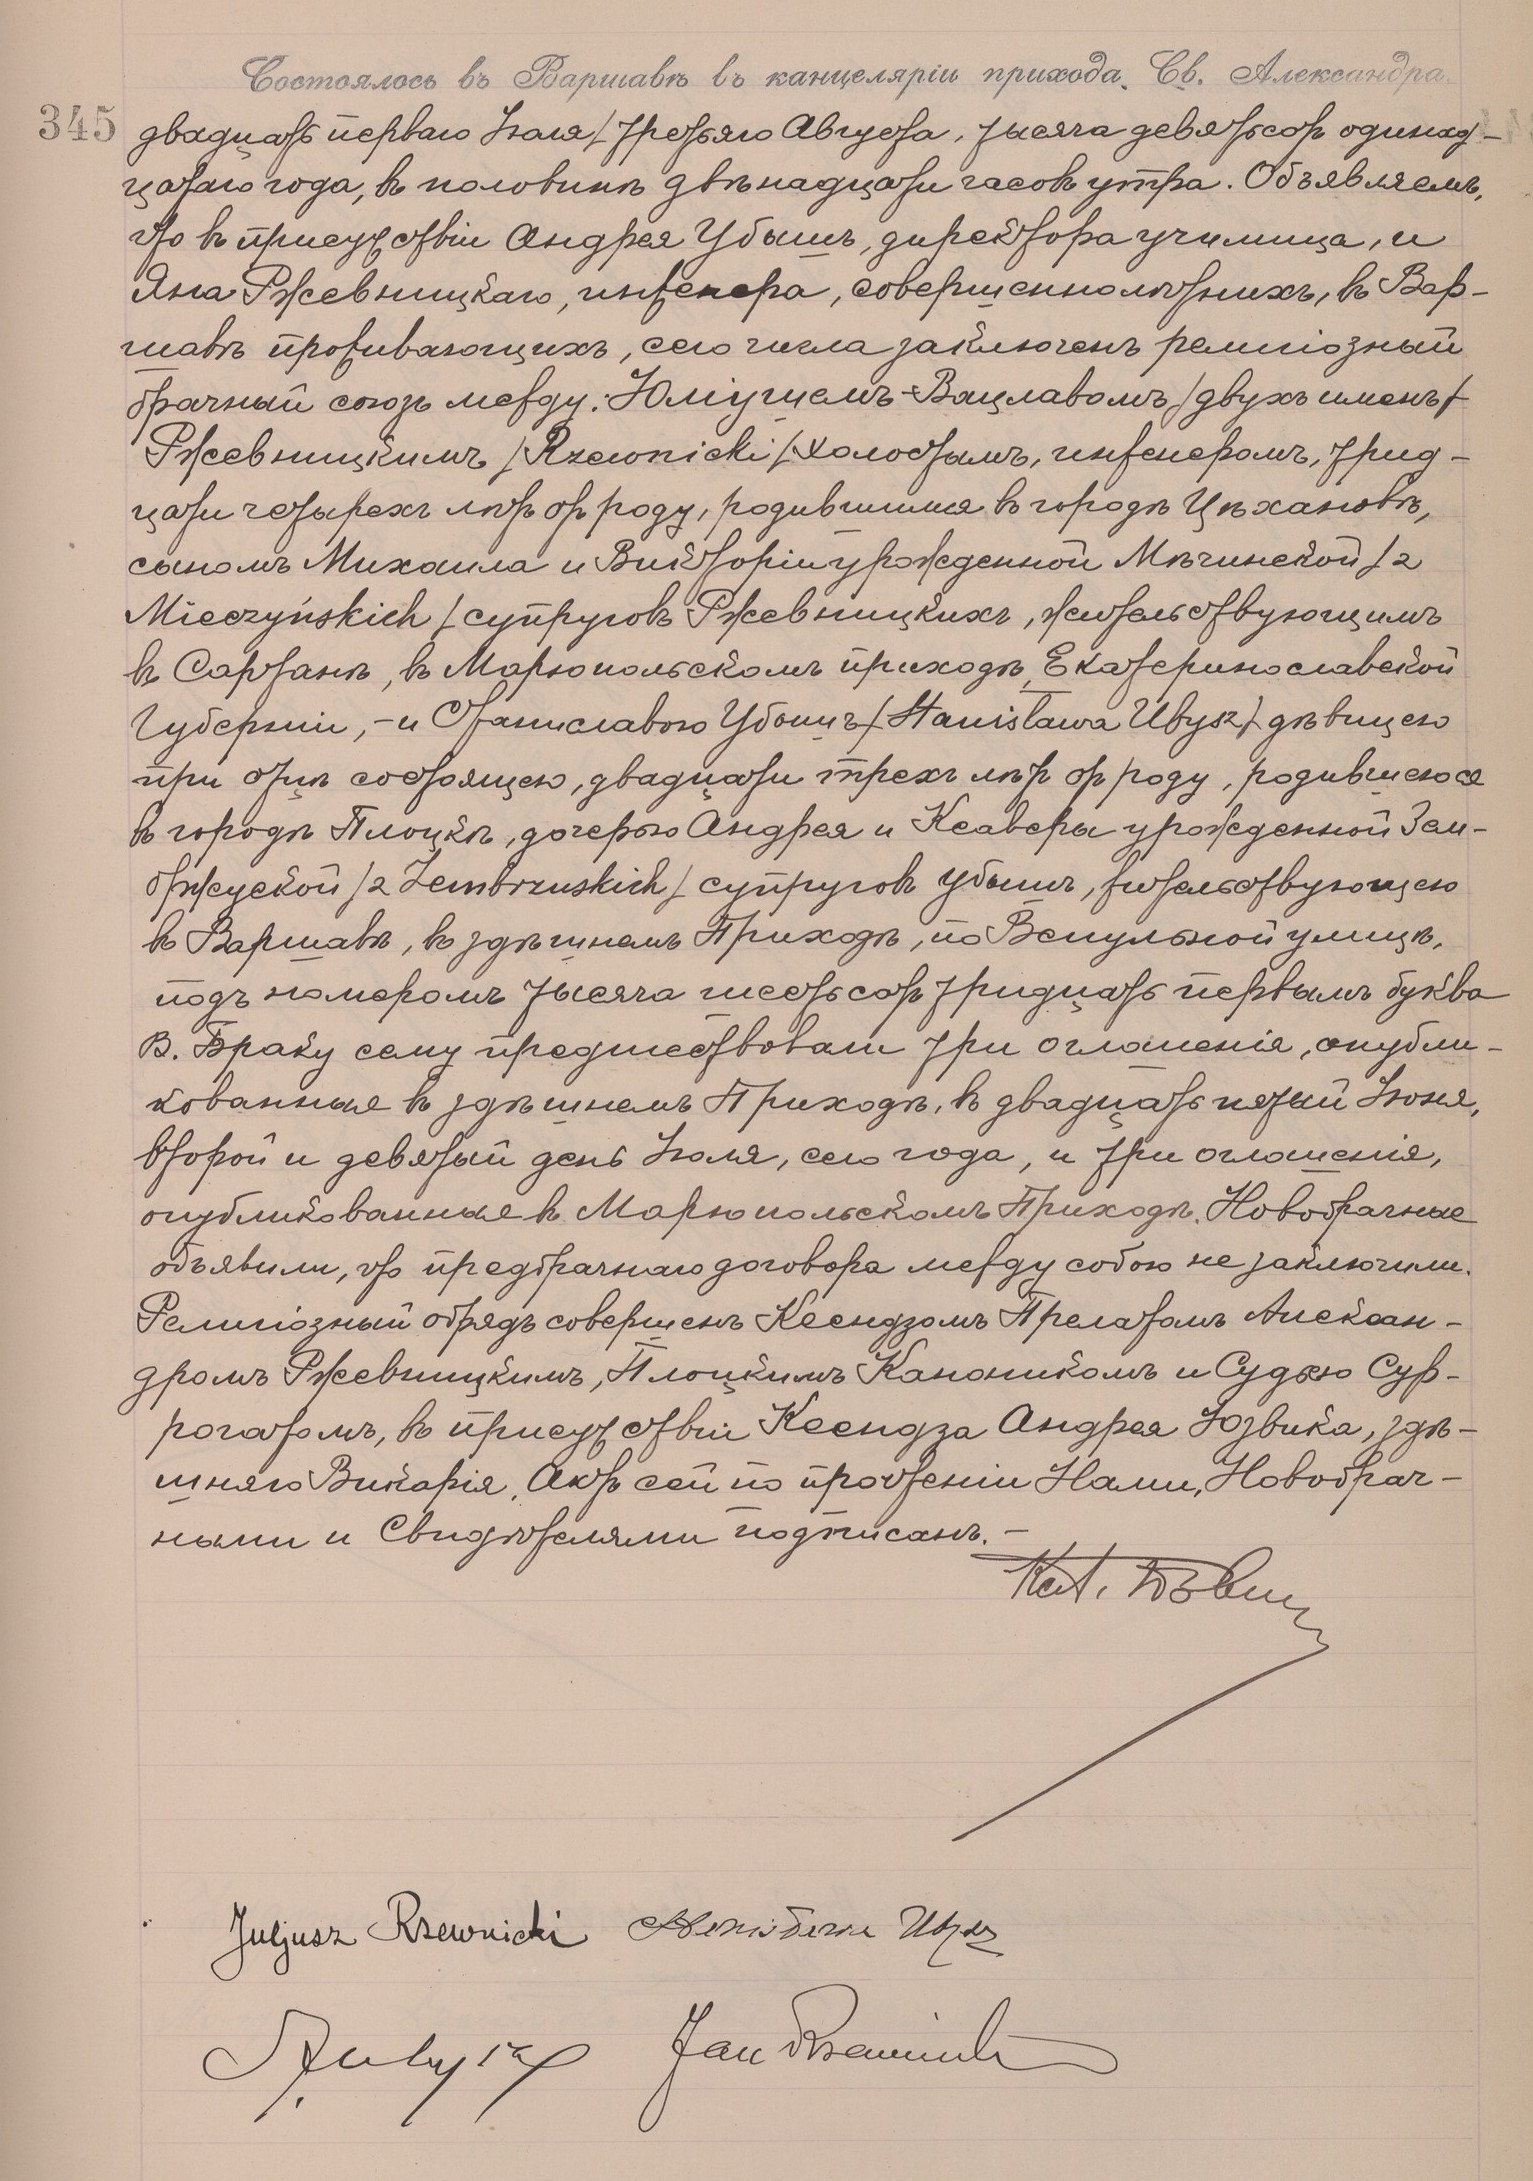 Состоялось въ Варшавѣ въ канцеляріи прихода Св. Александра
345 двадцать перваго Іюля / третьяго Августа, тысяча девятьсотъ одинад-
цатаго года, въ половинѣ двѣнадцати часовъ утра. Объявляемъ,
что въ присутствіи Андрея Убышъ, директора училища, и
Яна Ржевницкаго, инженера, совершеннолѣтнихъ, въ Вар-
шавѣ проживающихъ, сего числа заключенъ религіозный
брачный союзъ между: Юліушемъ-Вацлавомъ /двухъ именъ/
Ржевницкимъ /Rzewnicki/ холостымъ, инженеромъ, трид-
цати четырехъ лѣтъ отъ роду, родившимся въ городѣ Цѣхановѣ,
сыномъ Михаила и Викторіи урожденной Мѣчинской /z
Mieczyńskich/ супруговъ Ржевницкихъ, жительствующимъ
въ Сартанѣ, въ Марюпольскомъ приходѣ, Екатеринославской
Губерніи, - и Станиславою Убышъ /Stanisława Ubysz/ дѣвицею
при отцѣ состоящею, двадцати трехъ лѣтъ отъ роду, родившеюся
въ городѣ Плоцкѣ, дочерью Андрея и Ксаверы урожденной Зем-
бржуской /z Zembrzuskich/ супруговъ Убышъ, жительствующею
въ Варшавѣ, въ здѣшнемъ Приходѣ, по Вспульной улицѣ,
подъ номеромъ тысяча шестьсотъ тридцать первымъ буква
В. Браку сему предшествовали три оглашенія, опубли-
кованныя въ здѣшнемъ Приходѣ, въ двадцать пятый Іюня,
второй и девятый день Іюля, сего года, и три оглашенія,
опубликованныя въ Марюпольскомъ Приходѣ. Новобрачные
объявили, что предбрачнаго договора между собою не заключили.
Религіозный обрядъ совершенъ Ксендзомъ Прелатомъ Алексан-
дромъ Ржевницкимъ, Плоцкимъ Каноникомъ и Судьею Сур-
рогатомъ, въ присутствіи Ксендза Андрея Юзвика, здѣ-
шняго Викарія. Актъ сей по прочтеніи Нами, Новобрач-
ными и Свидѣтелями подписанъ. -
Juljusz Rzewnicki Stanisława Ubysz
Jan Rzewnicki